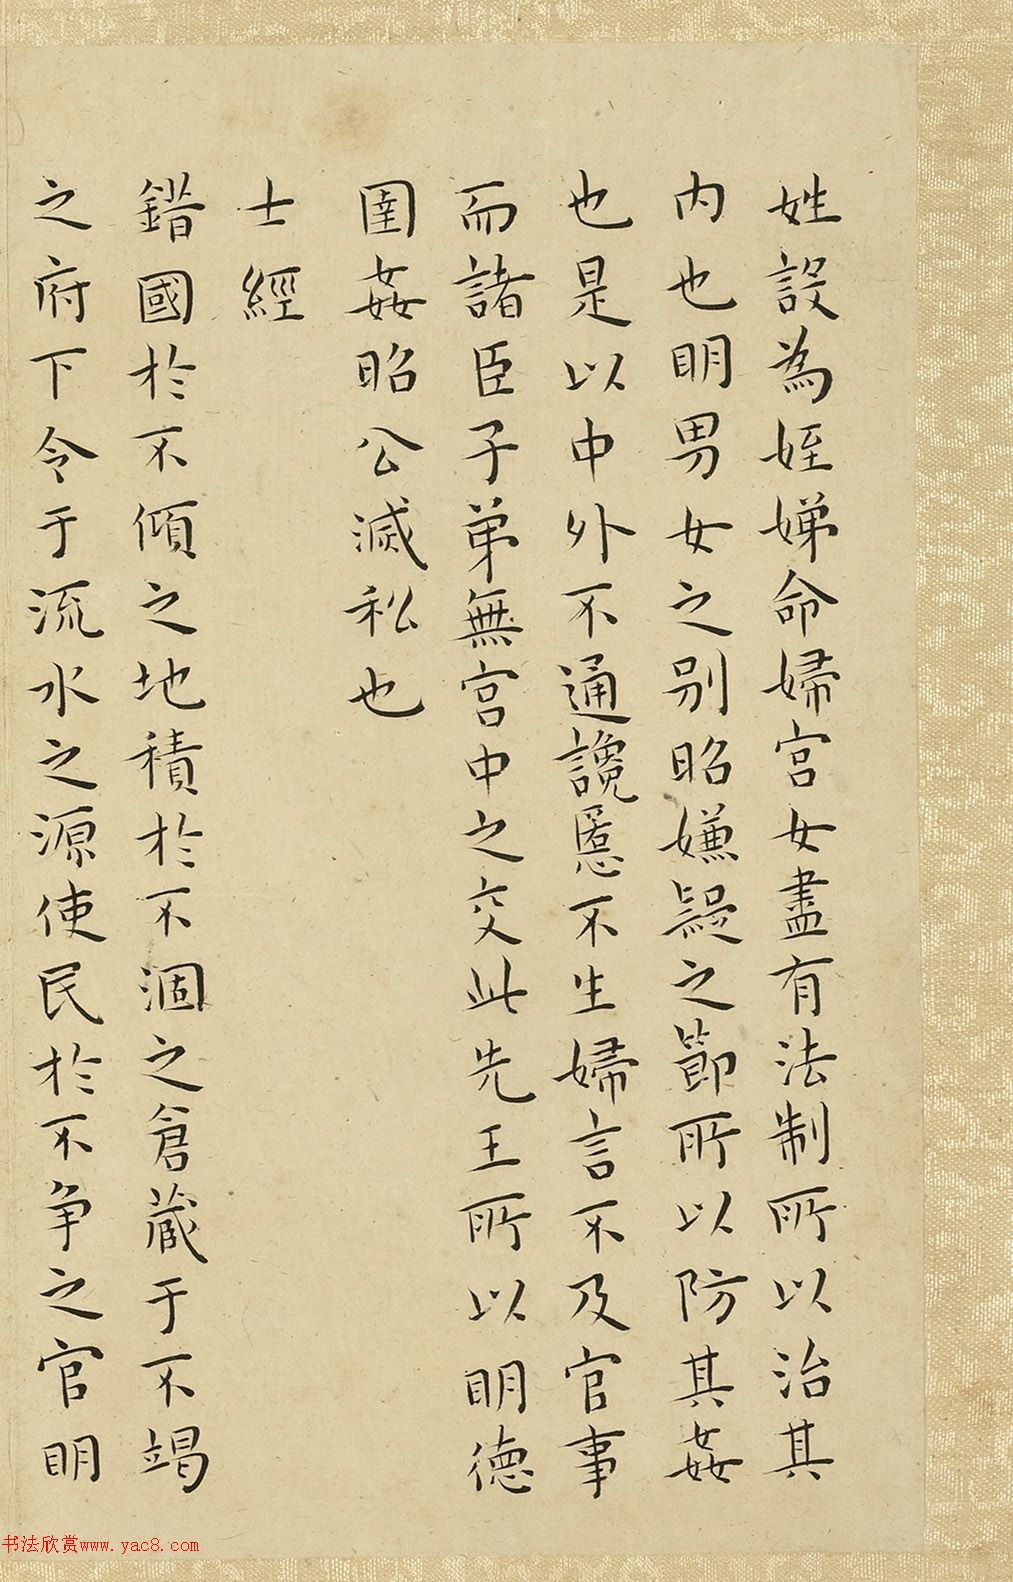 姓設為姪娣命婦宮女盡有法制所以治其
内也明男女之别昭嫌疑之節所以防其姦
也是以中外不通讒慝不生婦言不及官事
而諸臣子弟無宮中之交此先王所以明德
圉姦昭公滅私也
士經
錯國於不傾之地積於不涸之倉蔵于不竭
之府下令于流水之源使民於不争之官明
书法欣赏www.yac8.com